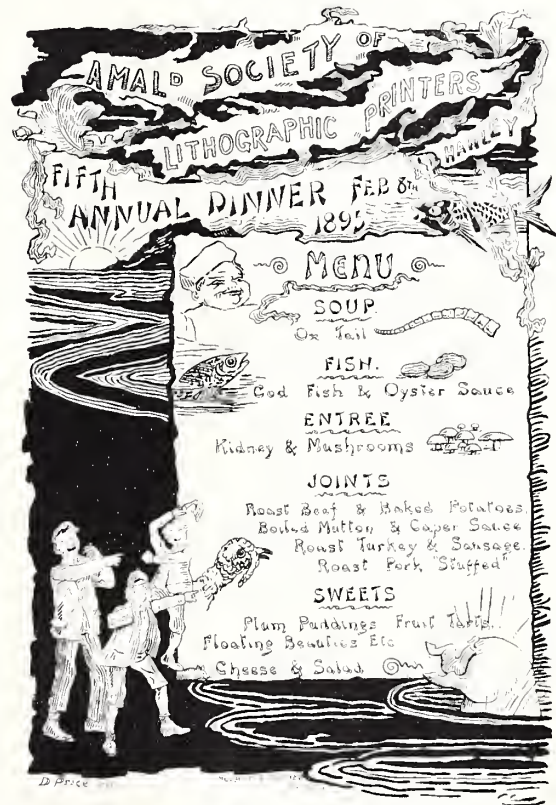 AMALD SOCIETY OF
LITHOGRAPHIC PRINTERS
HANLEY
FIFTH
ANNUAL DINNER FEB 8TH
1895
MENU
SOUP.
Ox Tail
FISH.
Cod Fish & Oyster Sauce
ENTREE
Kidney & Mushrooms
JOINTS
Roast Beef & Baked Potatoes.
Boiled Mutton & Caper Sauce
Roast Turkey & Sausage.
Roast Pork "Stuffed"
SWEETS
Plum Puddings Fruit Tarts..
Floating Beauties Etc
Cheese & Salad
D Price